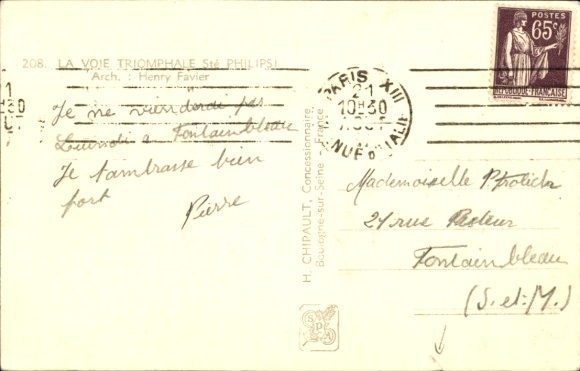 208. LA VOIE TRIOMPHALE Sté PHILIPS)
Arch. : Henry Favier
Je ne viendrai pas
à Fontainebleau
Je t'ambrasse bien
fort
Pierre
H. CHIPAULT, Concessionnaire,
Boulogne-sur-Seine - France
PARIS XIII
21
10H30
POSTES
65c
REPUBLIQUE FRANÇAISE
Mademoiselle
21 rue Pasteur
Fontainebleau
(S.et.M.)